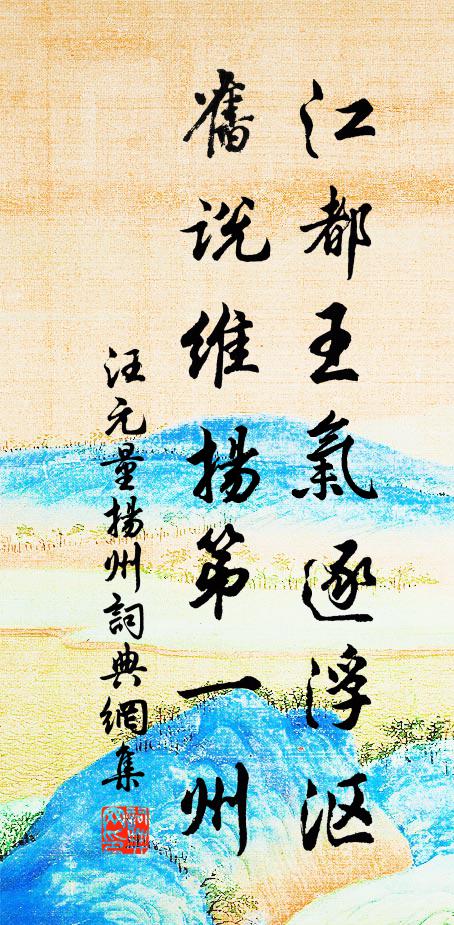 江都王氣逐浮沤
舊説維揚第一州
汪元量揚州詞典網集